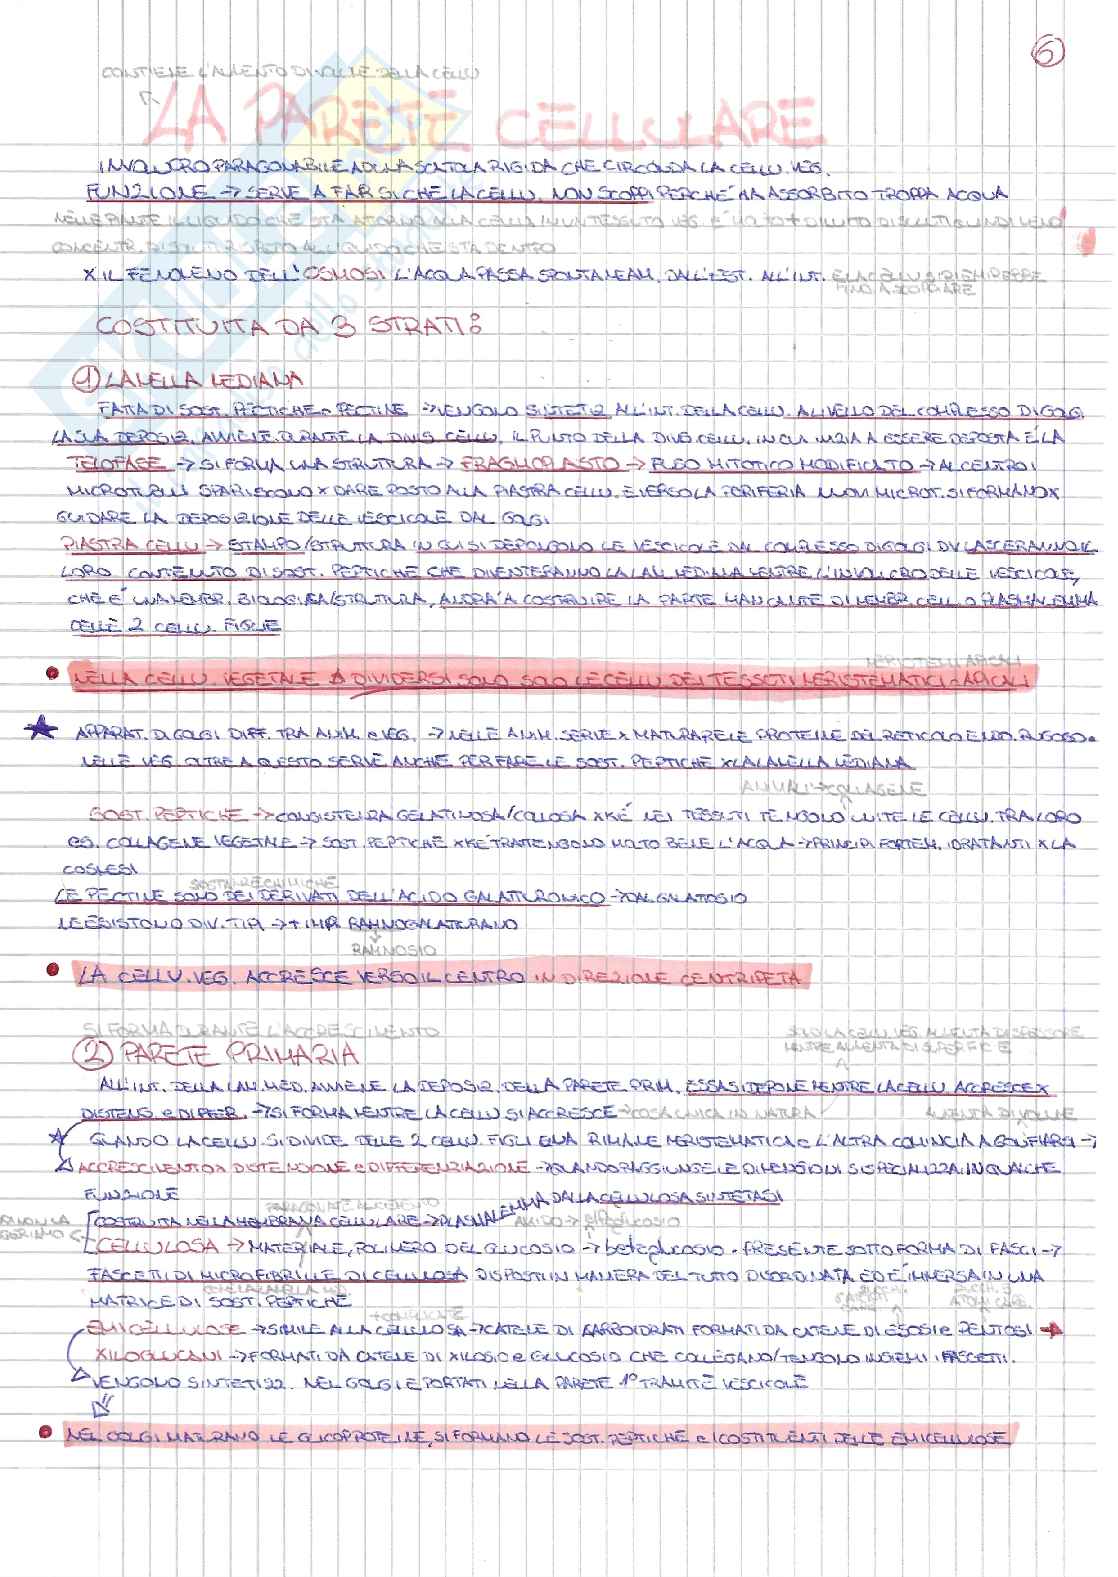 6
CONTIENE L'AUMENTO DI VOLUME DELLA CELLU
LA PARETE CELLULARE
INVOLUCRO PARAGONABILE AD UNA SCATOLA RIGIDA CHE CIRCONDA LA CELLU. VEG.
FUNZIONE → SERVE A FAR SI CHE LA CELLU. NON SCOPPI PERCHÈ HA ASSORBITO TROPPA ACQUA
NELLE PIANTE IL LIQUIDO CHE STA ATTORNO ALLA CELLU IN UN TESSUTO VEG. È MOLTO + DILUITO DI SOLUTI QUINDI MENO
CONCENTR. DI SOLUTI RISPETTO AL LIQUIDO CHE STA DENTRO
X IL FENOMENO DELL'OSMOSI L'ACQUA PASSA SPONTANEAM. DALL'EST. ALL'INT. E LA CELLU SI RIEMPIREBBE
FINO A SCOPPIARE
COSTITUITA DA 3 STRATI:
① LAMELLA MEDIANA
FATTA DI SOST. PECTICHE o PECTINE → VENGONO SINTETIZ ALL'INT. DELLA CELLU. A LIVELLO DEL COMPLESSO DI GOLGI
LA SUA DEPOSIZ. AVVIENE DURANTE LA DIVIS. CELLU. IL PUNTO DELLA DIVIS CELLU. IN CUI INIZIA A ESSERE DEPOSTA È LA
TELOFASE → SI FORMA UNA STRUTTURA → FRAGMOPLASTO → FUSO MITOTICO MODIFICATO → AL CENTRO I
MICROTUBULI SPARISCONO X DARE POSTO ALLA PIASTRA CELLU. E VERSO LA PERIFERIA NUOVI MICROT. SI FORMANO X
GUIDARE LA DEPOSIZIONE DELLE VESCICOLE DAL GOLGI
PIASTRA CELLU → STAMPO/STRUTTURA IN CUI SI DEPONGONO LE VESCICOLE DAL COMPLESSO DI GOLGI LASCERANNO IL
LORO CONTENUTO DI SOST. PEPTICHE CHE DIVENTERANNO LA LAM. MEDIANA MENTRE L'INVOLUCRO DELLE VESCICOLE,
CHE È UNA MEMBR. BIOLOGICA/STRUTTURA, ANDRÀ A COSTRUIRE LA PARTE MANCANTE DI MEMBR. CELL O PLASMALEMMA
DELLE 2 CELLU. FIGLIE
MERISTEMI APICALI
• NELLA CELLU. VEGETALE A DIVIDERSI SOLO SOLO LE CELLU DEI TESSUTI MERISTEMATICI o APICALI
★ APPARAT. DI GOLGI DIFF. TRA ANIM. e VEG. → NELLE ANIM. SERVE X MATURARE LE PROTEINE DEL RETICOLO ENDO. RUGOSO e
NELLE VEG. OLTRE A QUESTO SERVE ANCHE PER FARE LE SOST. PEPTICHE X LA LAMELLA MEDIANA
ANIMALI → COLLAGENE
SOST. PEPTICHE → CONSISTENZA GELATINOSA/COLLOSA XKÈ NEI TESSUTI TENGONO UNITE LE CELLU. TRA LORO
es. COLLAGENE VEGETALE → SOST. PEPTICHE XKÈ TRATTENGONO MOLTO BENE L'ACQUA → PRINCIPI FORTEM. IDRATANTI X LA
COSMESI
SOSTANZE CHIMICHE
LE PECTINE SONO DEI DERIVATI DELL'ACIDO GALATTURONICO → DAL GALATTOSIO
NE ESISTONO DIV. TIPI → + IMP. RAMNOGALATTURANO
RAMNOSIO
• LA CELLU. VEG. ACCRESCE VERSO IL CENTRO IN DIREZIONE CENTRIPETA
SI FORMA DURANTE L'ACCRESCIMENTO
SINGOLA CELLU. VEG. AUMENTA DI SPESSORE
MENTRE AUMENTA DI SUPERFICIE
② PARETE PRIMARIA
ALL'INT. DELLA LAM. MED. AVVIENE LA DEPOSIZ. DELLA PARETE PRIM. ESSA SI DEPONE MENTRE LA CELLU. ACCRESCE X
DISTENS. e DIFFER. → SI FORMA MENTRE LA CELLU SI ACCRESCE → COSA UNICA IN NATURA
AUMENTA DI VOLUME
QUANDO LA CELLU. SI DIVIDE DELLE 2 CELLU. FIGLI UNA RIMANE MERISTEMATICA e L'ALTRA COMINCIA A GONFIARSI →
ACCRESCIMENTO X DISTENSIONE e DIFFERENZIAZIONE → QUANDO RAGGIUNGE LE DIMENSIONI SI SPECIALIZZA IN QUALCHE
FUNZIONE
COSTRUITA NELLA MEMBRANA CELLULARE → PLASMALEMMA DALLA CELLULOSA SINTETASI
AMIDO →
CELLULOSA → MATERIALE, POLIMERO DEL GLUCOSIO → betaglucosio - PRESENTE SOTTO FORMA DI FASCI →
FASCETTI DI MICROFIBRILLE DI CELLULOSA DISPOSTI IN MANIERA DEL TUTTO DISORDINATA ED È IMMERSA IN UNA
MATRICE DI SOST. PEPTICHE
+ COMPLICATE
EMICELLULOSE → SIMILE ALLA CELLULOSA → CATENE DI CARBOIDRATI FORMATI DA CATENE DI ESOSI e PENTOSI →
XILOGLUCANI → FORMATI DA CATENE DI XILOSIO e GLUCOSIO CHE COLLEGANO/TENGONO INSIEME I FASCETTI.
VENGONO SINTETIZZ. NEL GOLGI E PORTATI NELLA PARETE 1° TRAMITE VESCICOLE
• NEL GOLGI MATURANO LE GLICOPROTEINE, SI FORMANO LE SOST. PEPTICHE e I COSTITUENTI DELLE EMICELLULOSE